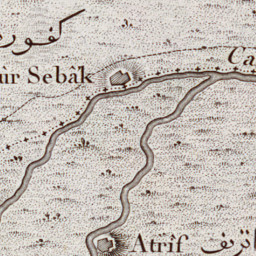 كفور
ùr Sebâk
Ca
Atrîf
اتريف